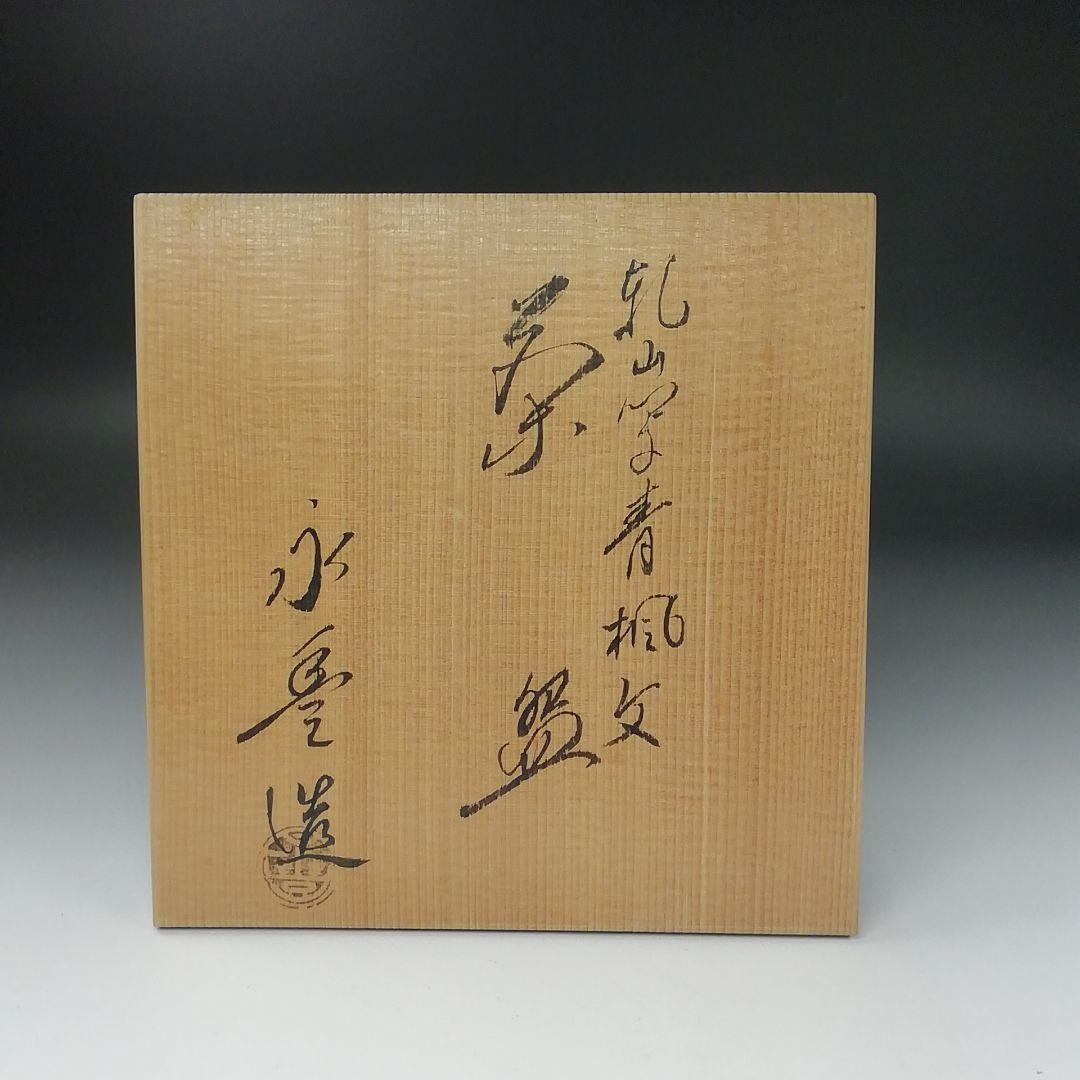 乾山写青楓文
菓 盌
永豊造